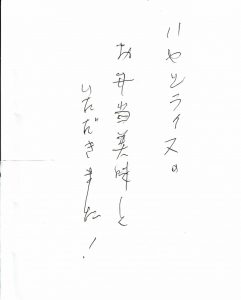 ハヤシライスの
お弁当美味しく
いただきました!